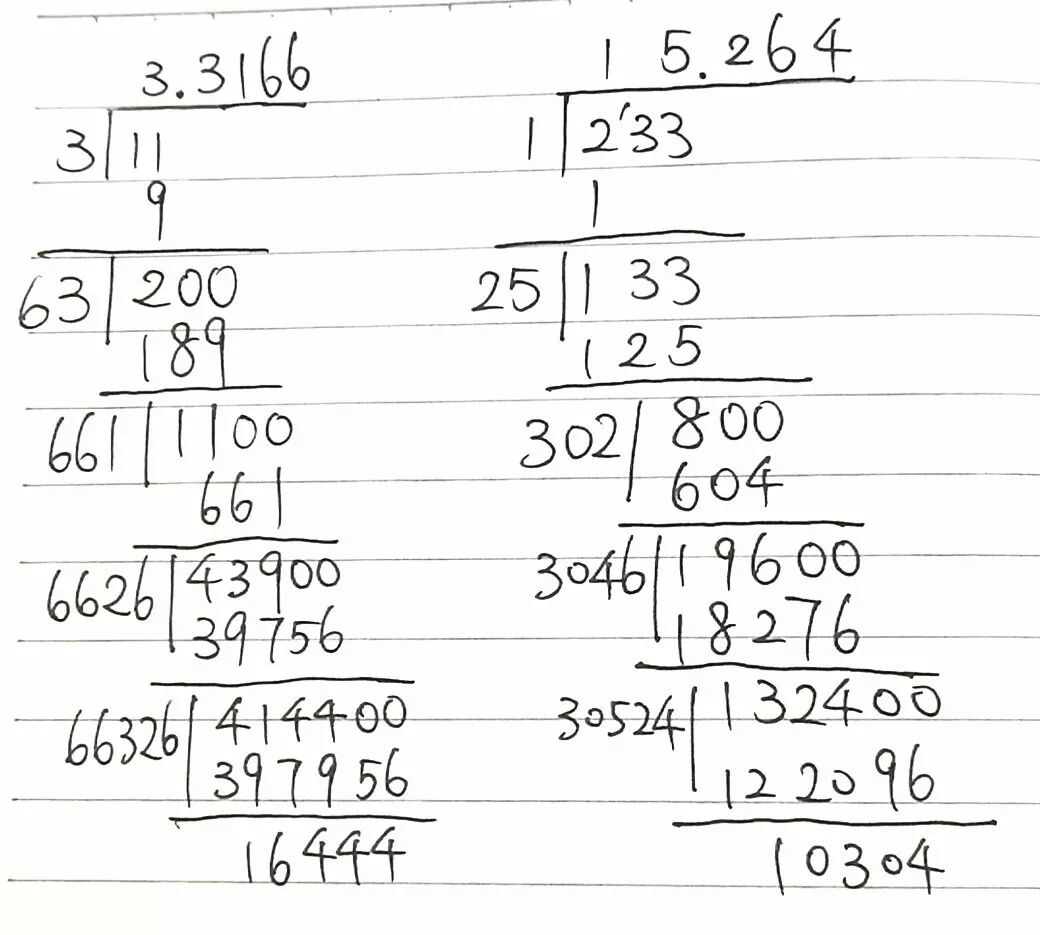 3.3166
3 11
9
63 200
189
661 1100
661
6626 43900
39756
66326 414400
397956
16444
1 5.264
1 2'33
1
25 1 33
1 2 5
302 800
604
3046 19600
18276
30524 132400
122096
10304